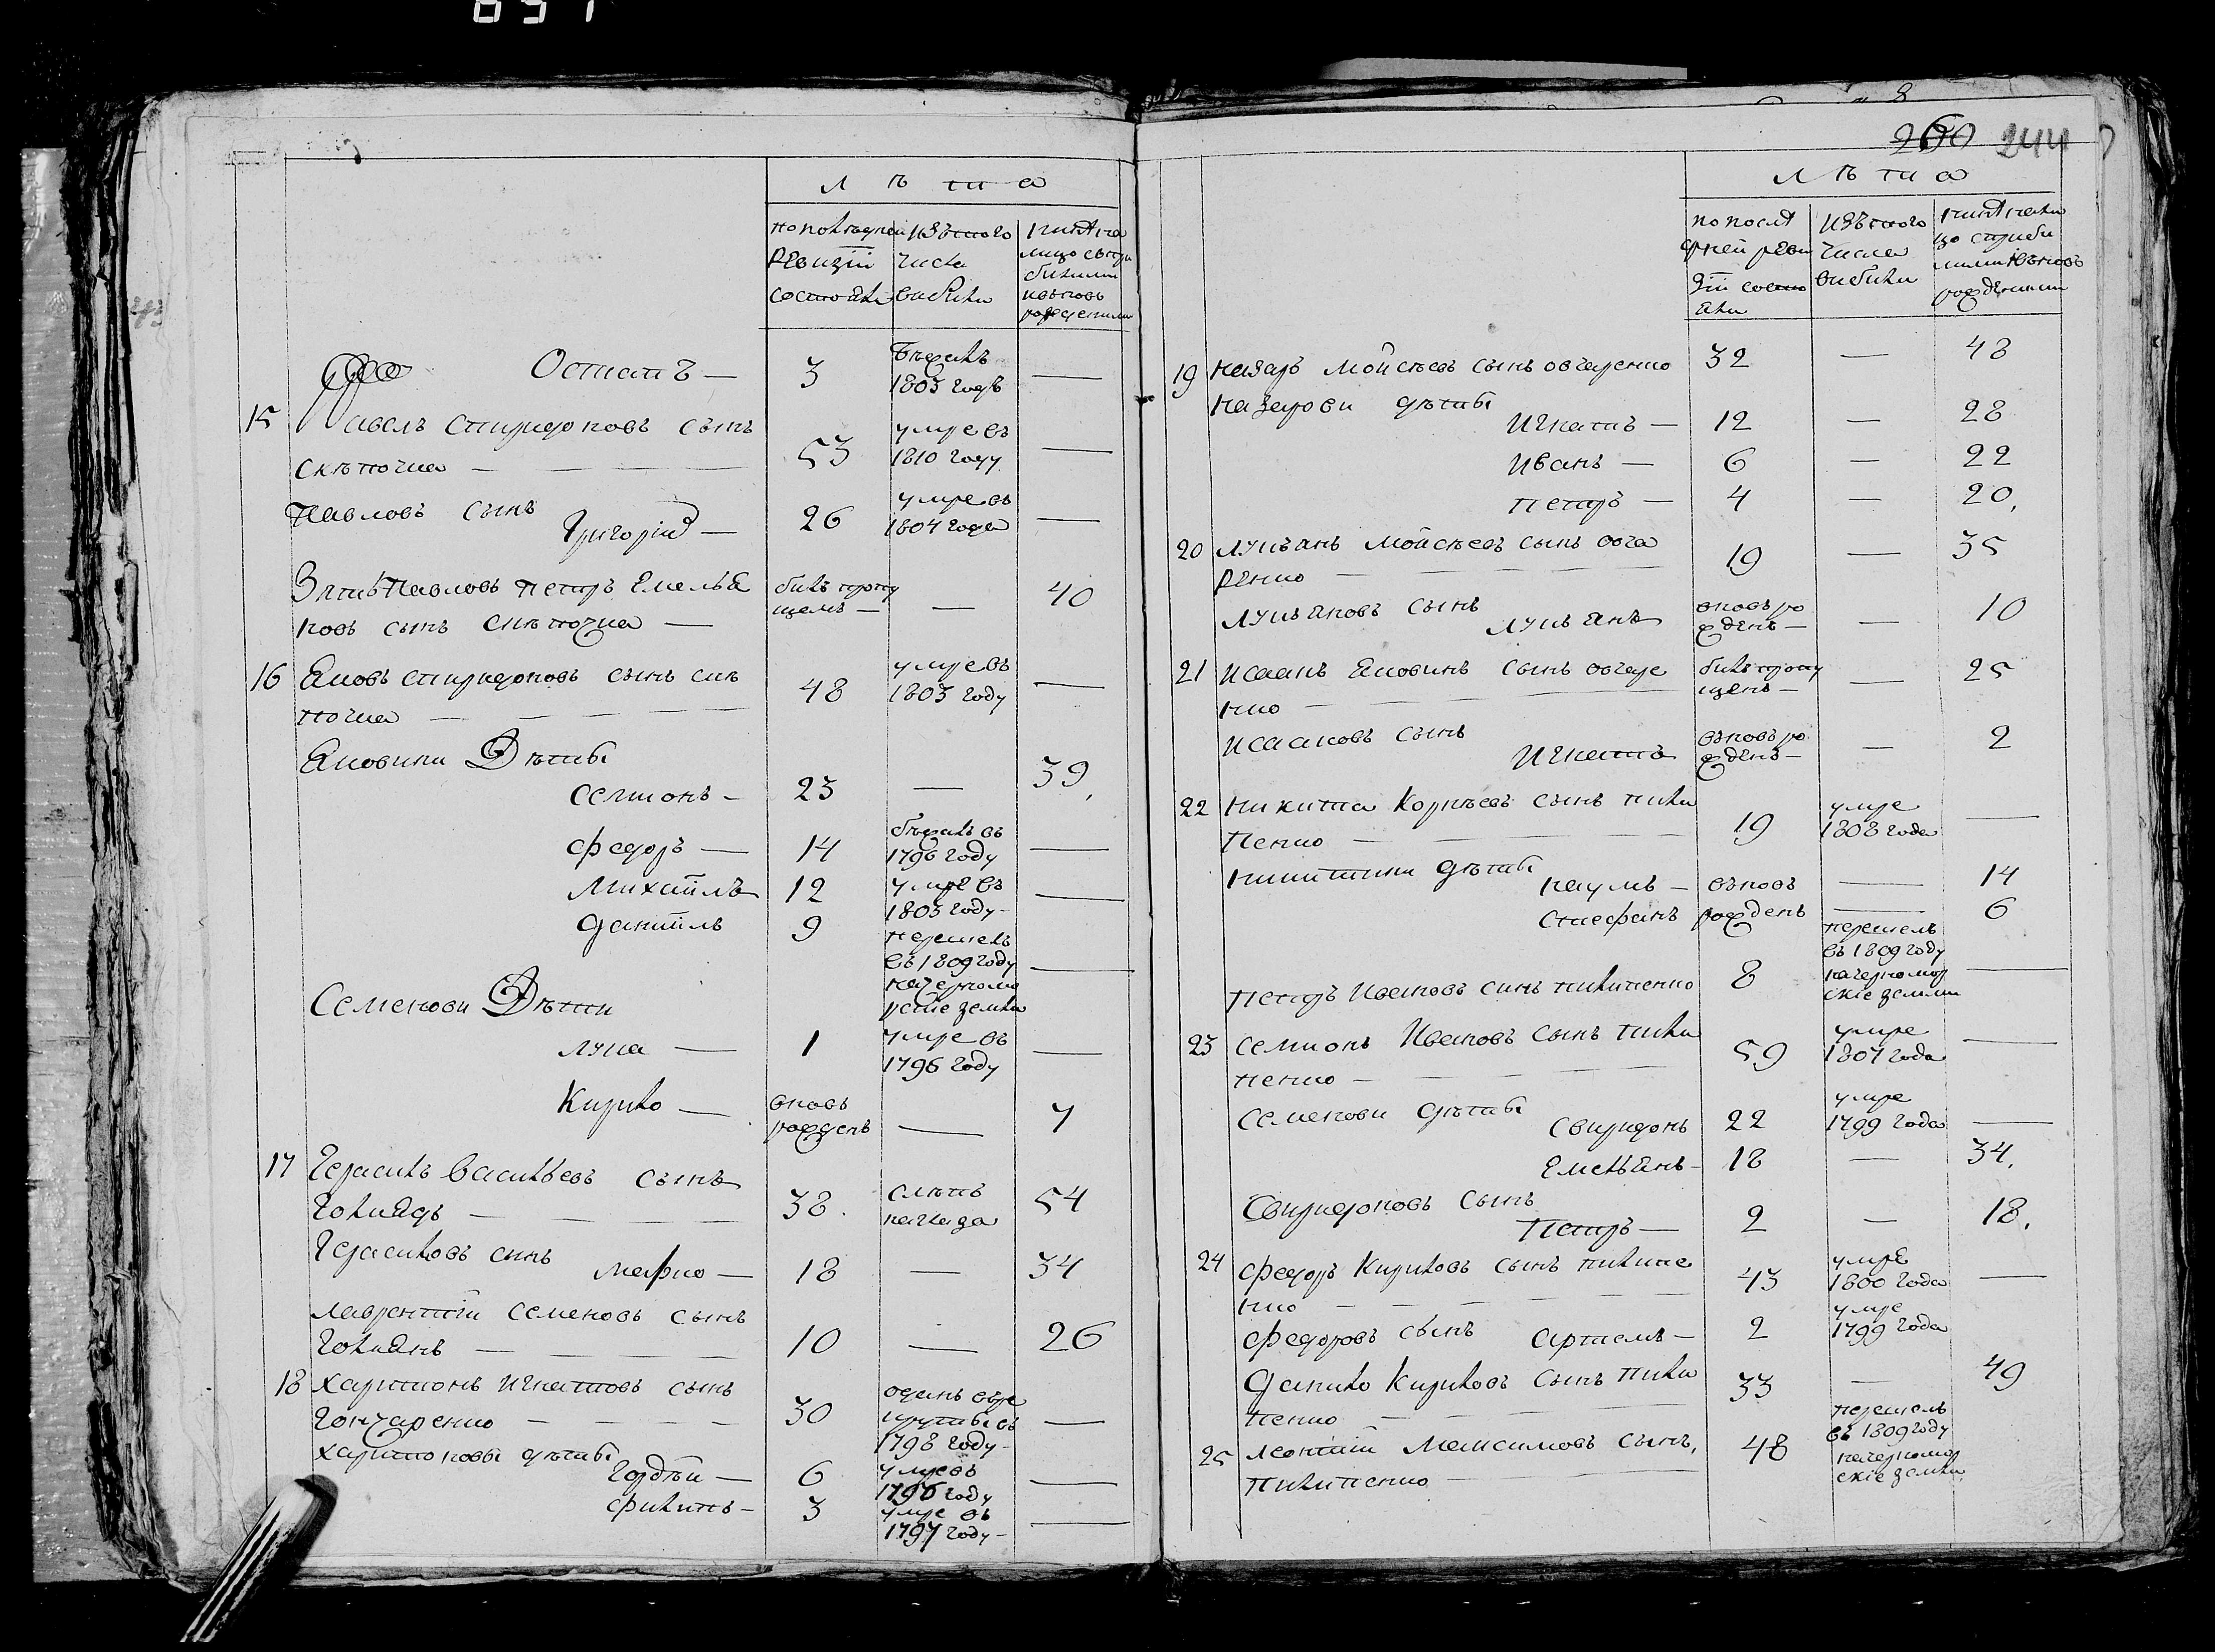 260 244
лѣта
по последней
Ревизіи
состояли
изъ того
числа
выбили
Остапъ — 3
бѣжалъ
1803 годъ —
15 Павелъ спиридоновъ сынъ
слѣпочка — 53
умре въ
1810 году —
Павловъ сынъ
Григорій — 26
умре въ
1804 года —
Зять Павловъ петръ Емелья
новъ сынъ слѣпочка —
билъ пропу
щемъ — — 40
16 Яковъ спиридоновъ сынъ слѣ
почка — 48
умре въ
1803 году —
Яковини Дѣты
семионъ — 23 — 39.
федоръ — 14
бѣжалъ въ
1796 году —
Михаилъ 12
умре въ
1803 году — —
даниилъ 9
перешелъ
въ 1809 году
на черномо
рскіе земли —
Семенови Дѣти
лука — 1
умре въ
1796 году —
Кирило —
вновъ
рожденъ — 7
17 Герасимъ васильевъ сынъ
Голиядъ — 38.
слѣпъ
на глаза 54
Герасимовъ синъ марко — 18 — 34
лаврентий семеновъ сынъ
Голиянъ — 10 — 26
18 харитонъ игнатовъ сынъ
Гончаренко — 30
оданъ въ ре
крути въ
1798 году — —
харитоновы дѣты
Гордѣй — 6
умре въ
1796 году —
филипъ — 3
умре въ
1797 году — —
лѣта
по послѣ
дней реви
зіи состо
яли
изъ того
числа
выбили
19 назаръ мойсѣевъ сынъ овчаренко 32 — 48
назарови дѣты
Игнатъ — 12 — 28
иванъ — 6 — 22
петръ — 4 — 20.
20 лукъянъ мойсѣевъ сынъ овча
ренко — 19 — 35
лукъяновъ сынъ
лукъянъ
вновъ ро
жденъ — — 10
21 исаакъ Яковинъ сынъ овчаре
нко —
билъ пропу
щенъ — — 25
исааковъ сынъ
Игнатъ
въновъ ро
жденъ — — 2
22 никита Корнѣевъ сынъ пили
пенко — 19
умре
1808 года —
никитини дѣты
наумъ — въновъ — 14
стефанъ рожденъ — 6
петръ ивановъ синъ пилипенко 8
перешелъ
въ 1809 году
на черномор
скіе земли —
23 семионъ ивановъ сынъ пили
пенко — 59
умре
1807 года —
семенови дѣты
свиридонъ 22
умре
1799 года —
Емельянъ — 18 — 34.
Свиридоновъ сынъ
петръ — 2 — 18.
24 федоръ Кириловъ сынъ пилипе
нко — 43
умре
1800 года —
федоровъ сынъ артемъ — 2
умре
1799 года
данило Кириловъ сынъ пили
пенко — 33 — 49
25 леонтий максимовъ сынъ,
пилипенко — 48
перешелъ
въ 1809 году
на черномор
скіе земли